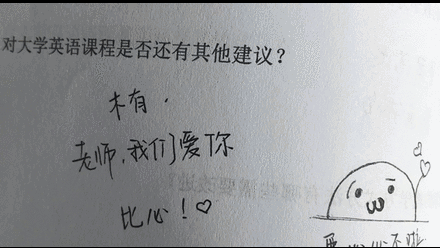 对大学英语课程是否还有其他建议？
木有.
老师,我们爱你
比心！♡